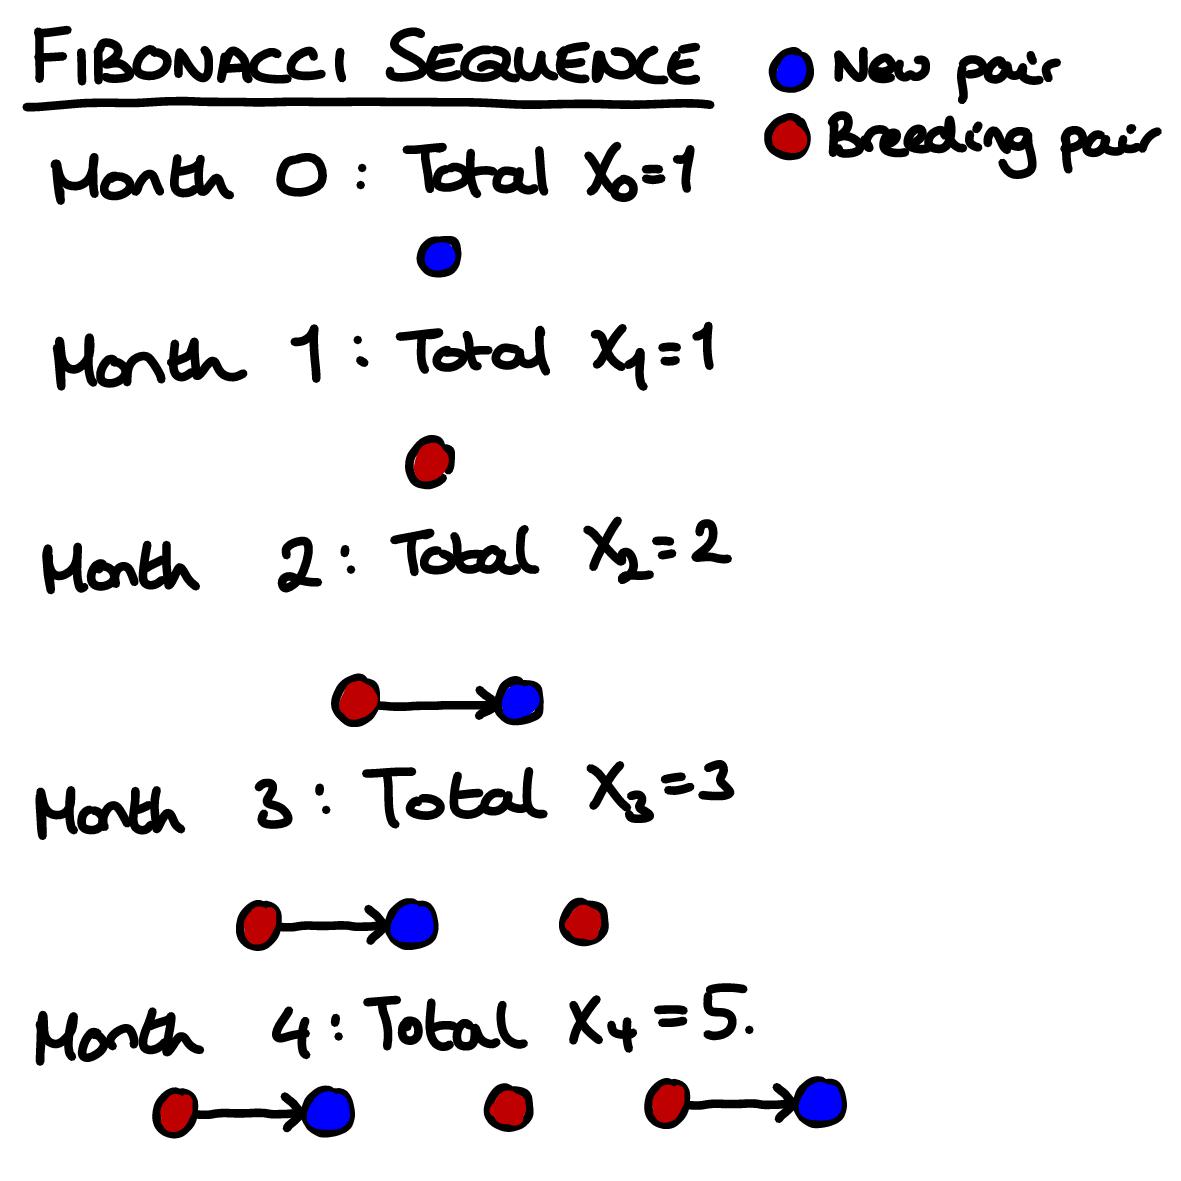 FIBONACCI SEQUENCE
New pair
Breeding pair
Month 0 : Total X₀=1
Month 1 : Total X₁=1
Month 2 : Total X₂=2
Month 3 : Total X₃=3
Month 4 : Total X₄=5.